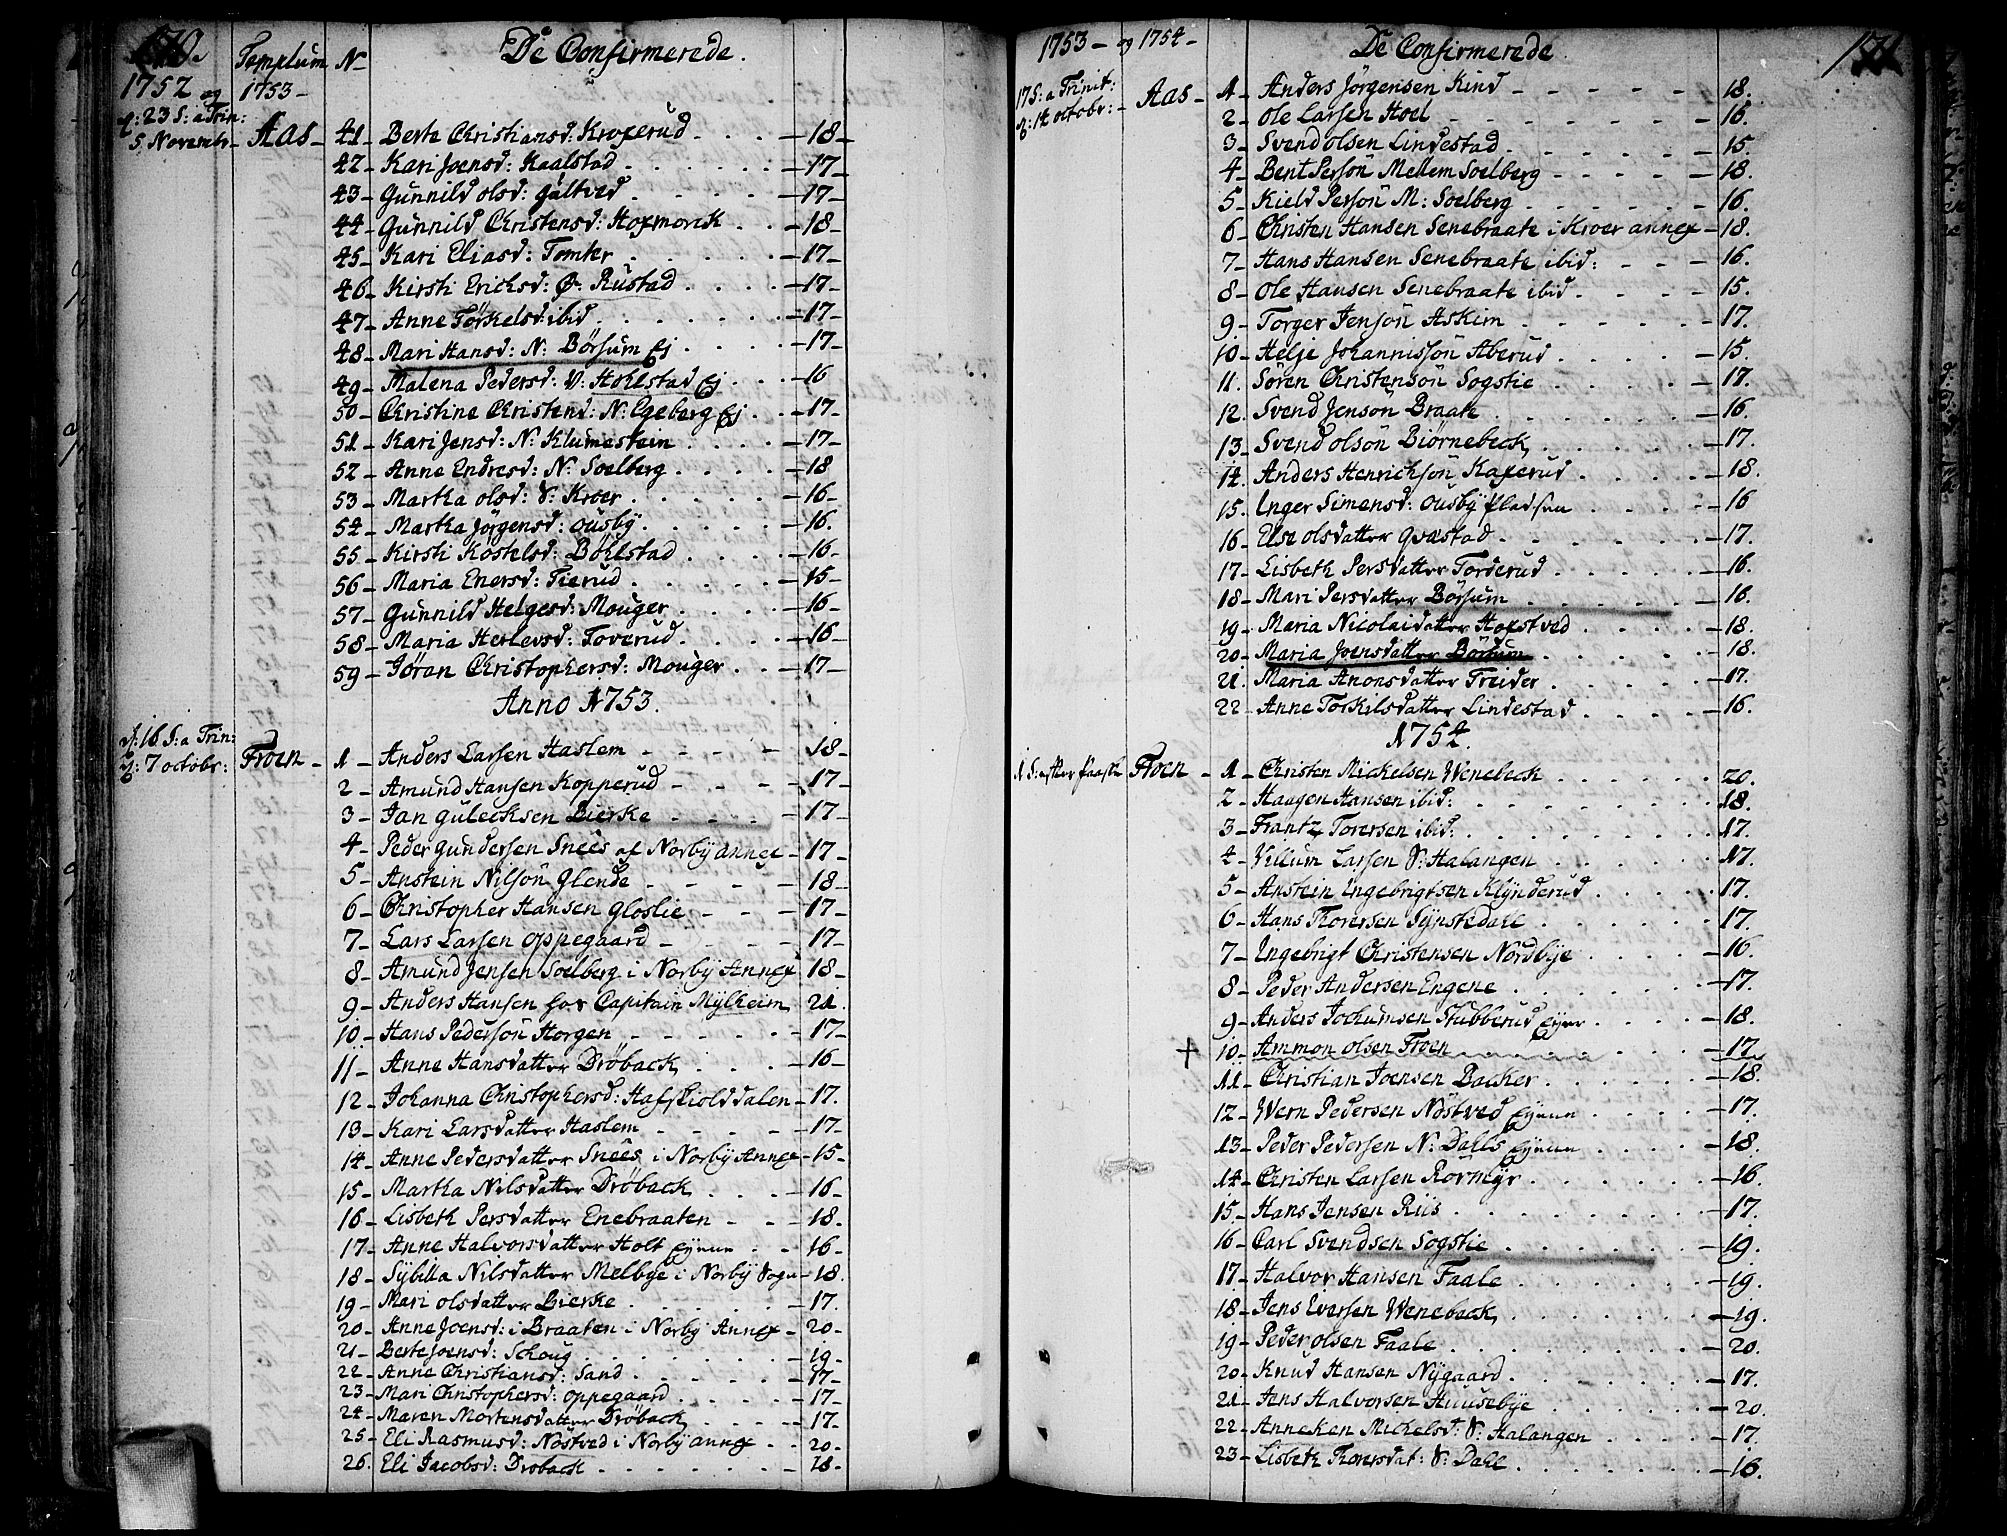 170.
Templum N- De Confirmerede.
1752 og 1753-
d: 23 S: a Trin:
5 Novembr- Aas-
41- Berte Christiansd: Kroxerud - 18-
42- Kari Joensd: Kaalstad - 17-
43- Gunnild olsd: galtved - 17-
44- Gunnild Christensd: Hoxmorck - 18-
45- Kari Eliasd: Tomter - 17-
46- Kirsti Erichsd: Ø. Rustad - 17-
47- Anne Törkelsd: ibid - 17-
48- Mari Hansd: N: Börsum Ej - 17-
49- Malena Pedersd: V: Hohlstad Ej - 16
50- Christine Christensd: N: Egeberg Ej - 17-
51- Kari Jensd: N: Klumestein - 17-
52- Anne Endresd: N: Soelberg - 18
53- Martha olsd: S: Kroer - 16-
54- Martha Jörgensd: ousby - 16.
55- Kirsti Köstelsd: Böhlstad - 16-
56- Maria Enersd: Tierud - 15-
57- Gunnild Helgesd: Mouger - 16-
58- Maria Herlevsd: Toverud - 16-
59- Jöran Christophersd: Mouger - 17-
Anno 1753.
d: 16 S: a Trin:
d: 7 octobr: Froen-
1- Anders Larsen Haslem - 18-
2- Amund Hansen Kopperud - 17-
3- Jan gulecksen Bierke - 17-
4- Peder gundersen Snees af Norby annex - 17-
5- Anstein Nilsön Glende - 18-
6- Christopher Hansen Gloslie - 17-
7- Lars Larsen oppegaard - 17-
8- Amund Jensen Soelberg i Norby Annex 18-
9- Anders Hansen hos Capitain Mylheim 21.
10- Hans Pedersön Horgen - 17-
11- Anne Hansdatter Dröback - 16-
12- Johanna Christophersd: Hafskiolddalen - 17.
13- Kari Larsdatter Haslem - 17-
14- Anne Pedersdatter Snees i Norby Annex - 15-
15- Martha Nilsdatter Dröback - 16-
16- Lisbeth Persdatter Enebraaten - 18-
17- Anne Halvorsdatter Holt Ejeren - 16-
18- Sybilla Nilsdatter Melbye i Norby Sogn - 18.
19- Mari olsdatter Bierke - 17.
20- Anne Joensd: i Braaten i Norby Annex - 20-
21- Berte Joensd: Schoug - 19-
22- Anne Christiansd: Sand - 17-
23- Mari Christophersd: oppegaard - 17-
24- Maren Mortensdatter Dröback - 17.
25- Eli Rasmusd: Nöstved i Norby annex - 20-
26. Eli Jacobsd: Droback - 18-
1753- og 1754- De Confirmerede 171
17 S: a Trinit:
d: 14 octobr: - Aas-
1- Anders Jörgensen Kind - 18.
2- Ole Larsen Hoel - 16.
3- Svend olsen Lindestad - 15
4- Bent Persön Mellem Soelberg - 18.
5- Kield Persön M: Soelberg - 16.
6- Christen Hansen Senebraate i Kroer annex - 18.
7- Hans Hansen Senebraate ibid: - 16.
8- Ole Hansen Senebraate ibid. - 15.
9- Torger Jensön Askim - 17.
10- Helje Johannissön Aberud - 15.
11. Sören Christensön Sogstie - 17.
12. Svend Jensön Braate - 16.
13- Svend olsön Biörnebeck - 17.
14. Anders Henrichsön Kaxerud - 18.
15. Inger Simensd: ousby pladsen - 16
16- Else olsdatter Qvæstad - 17.
17- Lisbeth Persdatter Torderud - 16.
18- Mari Persdatter Börsum - 16.
19- Maria Nicolaidatter Hoxstved - 18.
20- Maria Joensdatter Börsum - 18.
21. Maria Anonsdatter Treider - 17.
22- Anne Torkilsdatter Lindestad - 16.
1754.
1 S: efter paaske Froen -
1- Christen Mickelsen Wenebeck 20.
2- Haagen Hansen ibid: 18.
3- Frantz Torersen ibid: 17.
4- Villum Larsen S: Halangen 17.
5- Anstein Ingebrigtsen Klynderud 17.
6- Hans Thorersen Synstedalle 17.
7- Ingebrigt Christensen Nordbye - 16.
8- Peder Andersen Engene - 17.
9- Anders Jochumsen Stubberud Ejeren - 18.
+ 10- Ammon olsen Froen - 17.
11- Christian Joensen Backer - 18.
12- Wern Pedersen Nöstved Ejeren - 17.
13- Peder Pedersen N: Dahls Ejeren - 18.
14- Christen Larsen Rörmyr - 16.
15- Hans Jensen Riis - 17.
16- Carl Svendsen Sogstie - 19.
17- Halvor Hansen Faale - 19.
18- Jens Iversen Weneback - 19.
19- Peder olsen Faale - 20.
20- Knud Hansen Nygaard - 17.
21- Jens Halvorsen Huusebye - 20.
22- Anneken Michelsd: S: Halangen - 17.
23- Lisbeth Thorersdat: S: Dahl - 16.